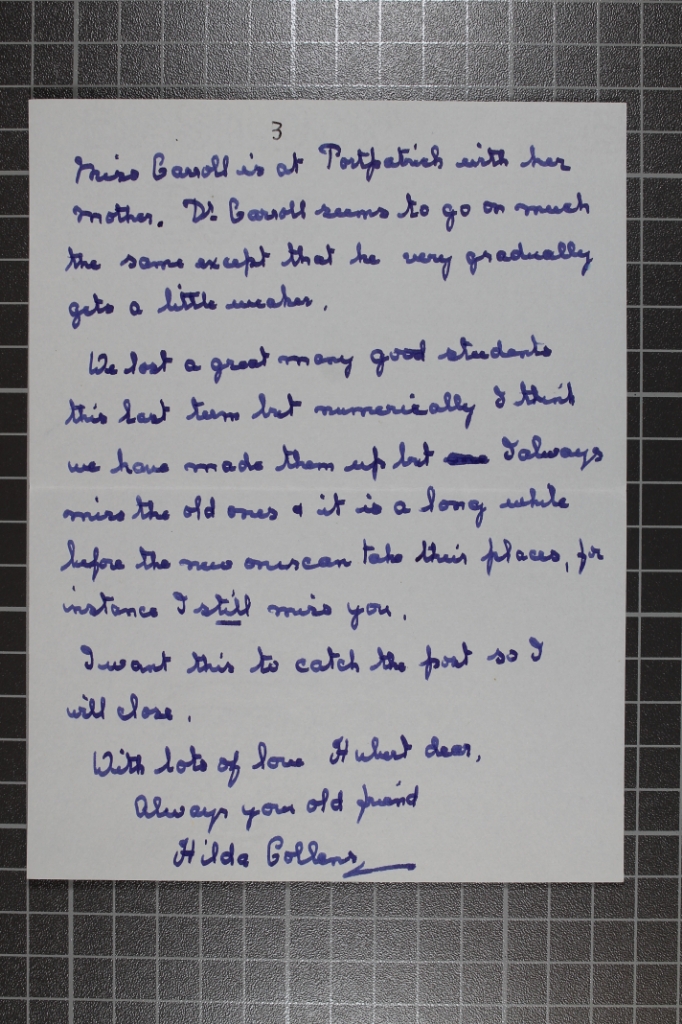 3
Miss Carroll is at Portpatrick with her
mother. Dr. Carroll seems to go on much
the same except that he very gradually
gets a little weaker.
We lost a great many good students
this last term but numerically I think
we have made them up but I always
miss the old ones & it is a long while
before the new ones can take their places, for
instance I still miss you.
I want this to catch the post so I
will close.
With lots of love Hubert dear,
Always your old friend
Hilda Collens